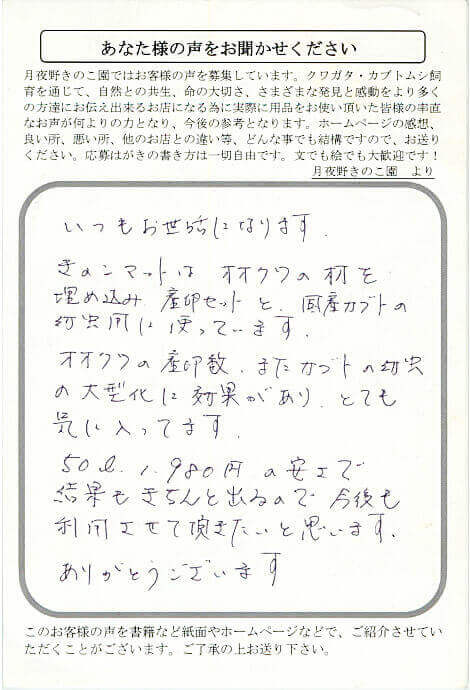 あなた様の声をお聞かせください
月夜野きのこ園ではお客様の声を募集しています。クワガタ・カブトムシ飼
育を通じて、自然との共生、命の大切さ、さまざまな発見と感動をより多く
の方達にお伝え出来るお店になる為に実際に用品をお使い頂いた皆様の率直
なお声が何よりの力となり、今後の参考となります。ホームページの感想、
良い所、悪い所、他のお店との違い等、どんな事でも結構ですので、お送り
ください。応募はがきの書き方は一切自由です。文でも絵でも大歓迎です！
月夜野きのこ園　より
いつもお世話になります.
きのこマットは オオクワの材を
埋め込み 産卵セットと、国産カブトの
幼虫用に使っています.
オオクワの産卵数、またカブトの幼虫
の大型化に効果があり、とても
気に入ってます.
50ℓ、1,980円の安さで
結果もきちんと出るので今後も
利用させて頂きたいと思います.
ありがとうございます
このお客様の声を書籍など紙面やホームページなどで、ご紹介させてい
ただくことがございます。ご了承の上お送り下さい。